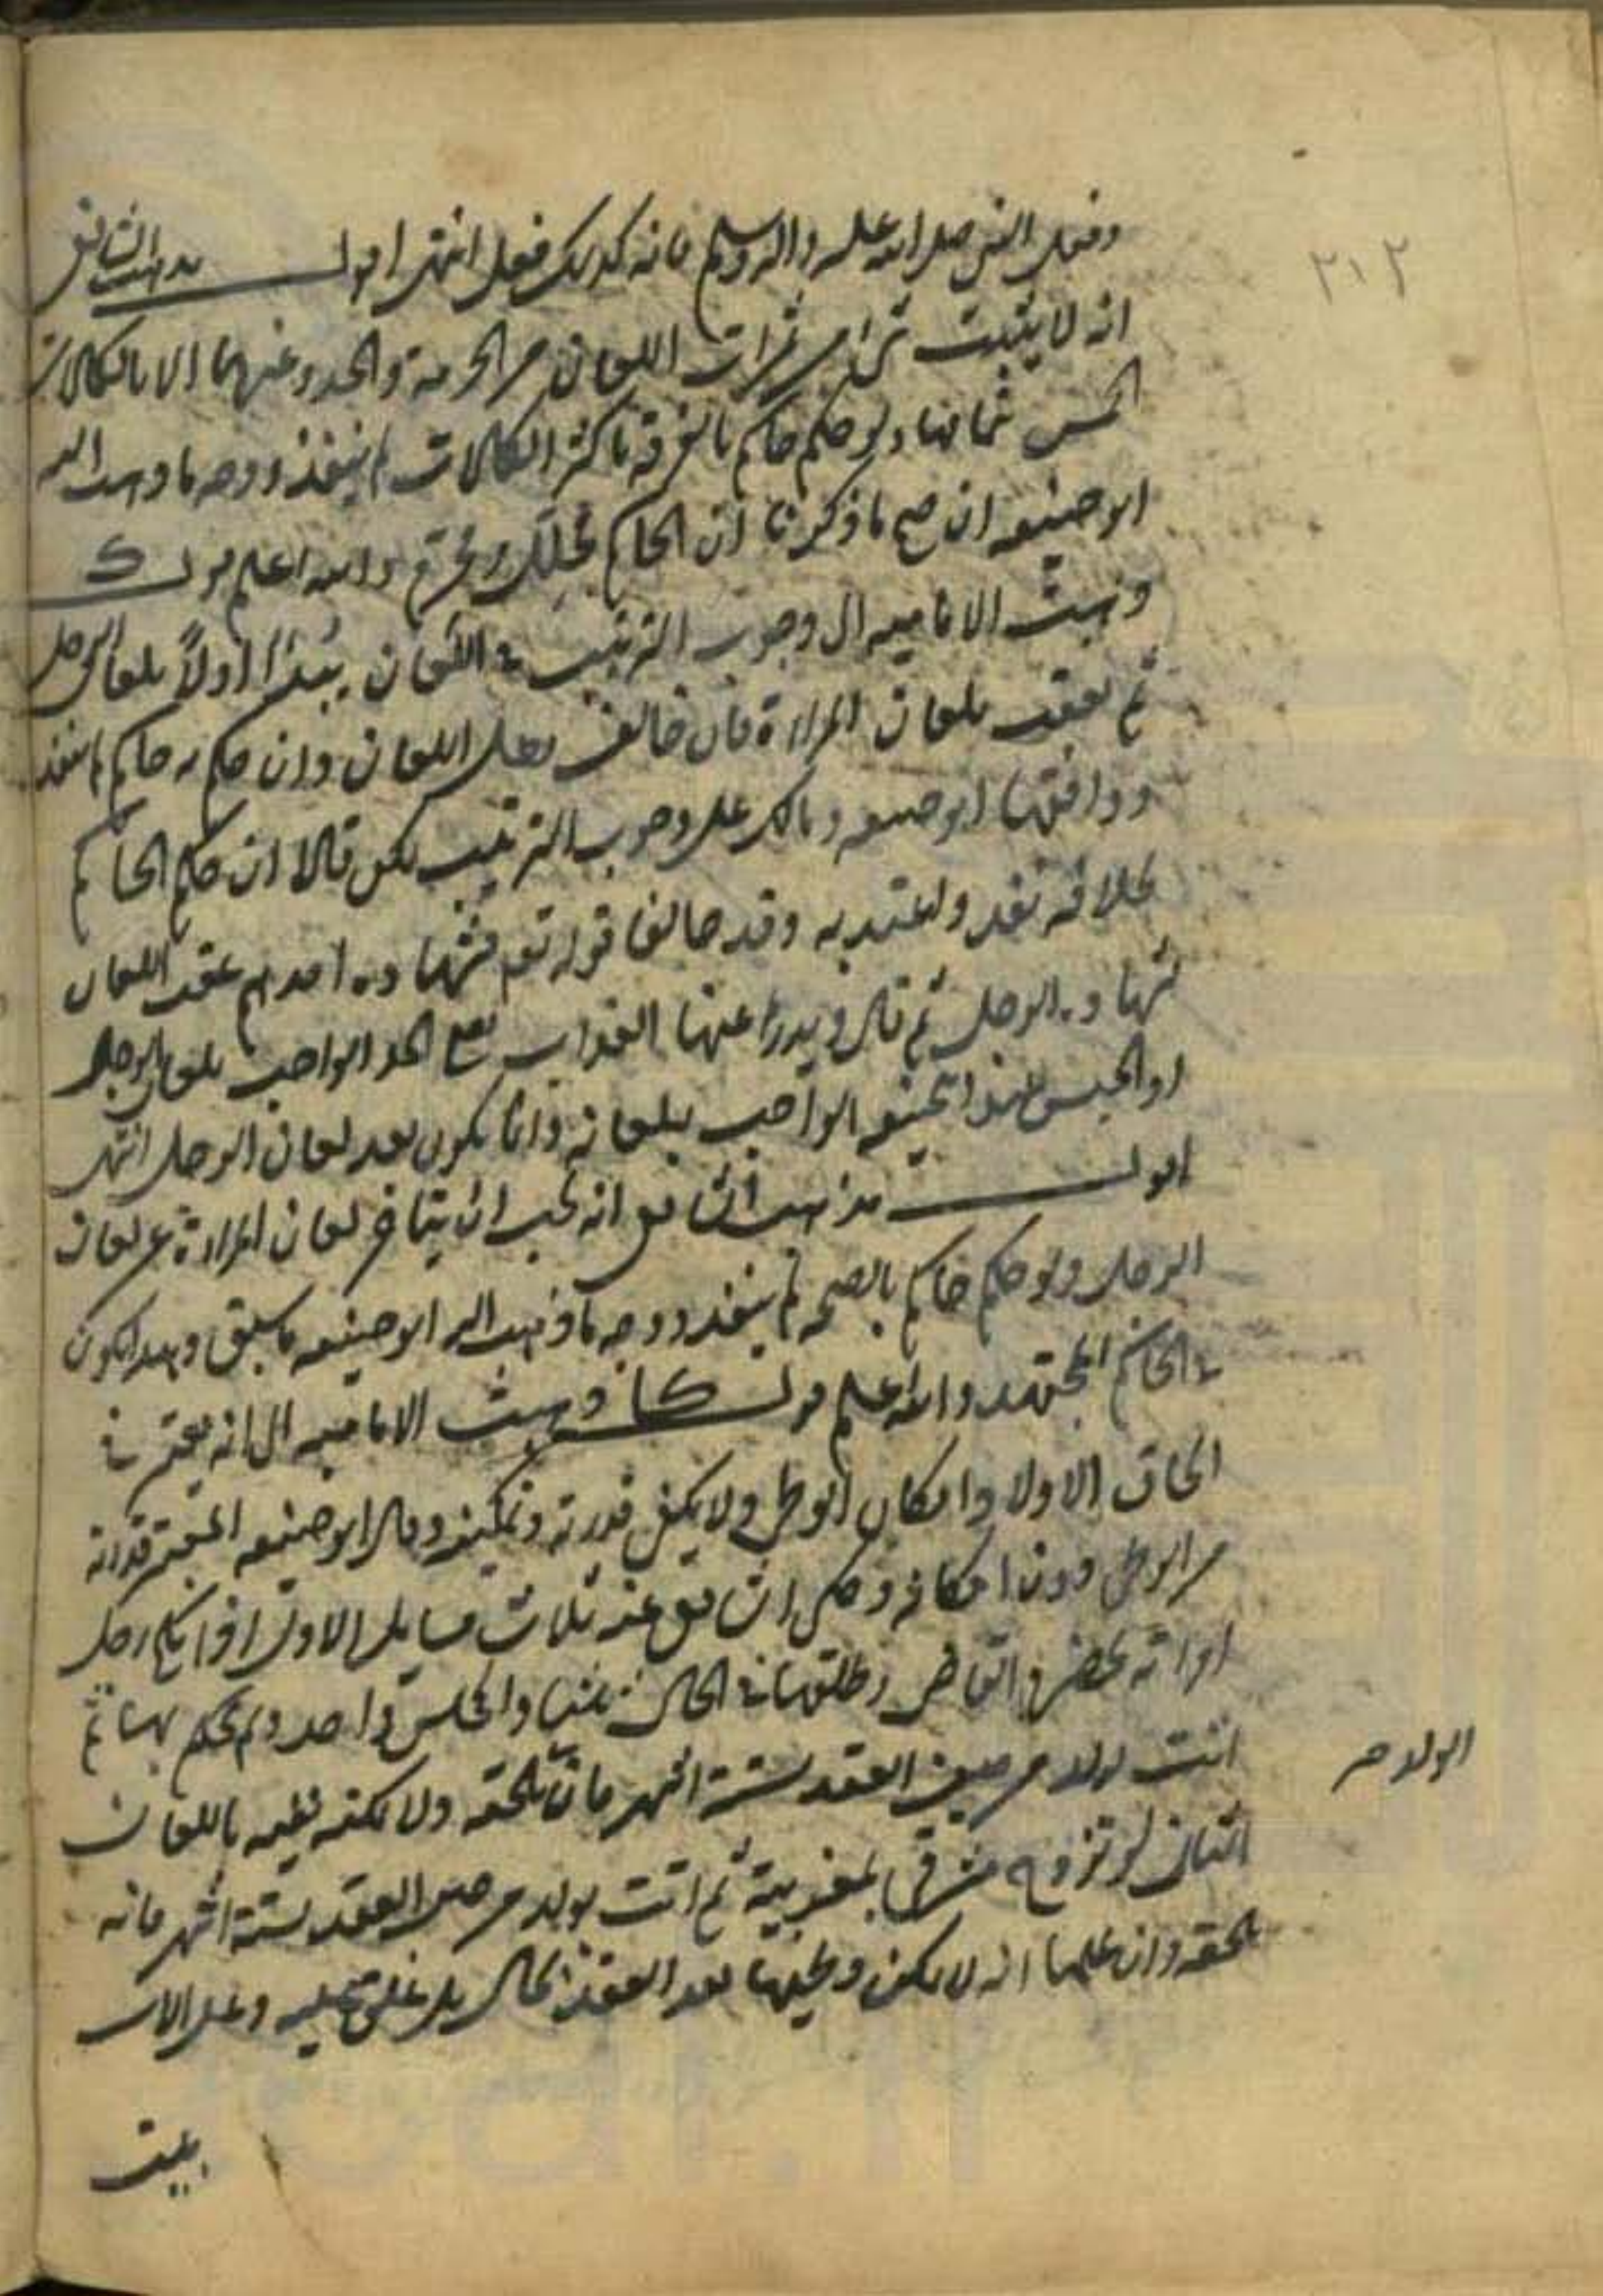 ٣١٢
وفعل النبي صلى الله عليه واله وسلم فانه كذلك فعل انتهى اقول مذهب الشافعي
انه لا يثبت شئ من ثمرات اللعان من الحرمة والحد وغيرهما الا بالكلمات
الخمس بتمامها ولو حكم حاكم بالفرقة باكثر الكلمات لم ينفذ ووجه ما ذهب اليه
ابو حنيفه ان صح ما ذكرنا ان الحاكم يحلل ويحرم والله اعلم قوله ك
ذهبت الاماميه الى وجوب الترتيب في اللعان يبتدأ اولا بلعان الرجل
ثم يعقب بلعان المراة فان خالف بطل اللعان وان حكم به حاكم لم ينفذ
ووافقها ابو حنيفه ومالك على وجوب الترتيب لكن قالا ان حكم الحاكم
بخلافه نفذ واعتد به وقد خالفا قوله تعم فشهادة احدهم عقب اللعان
بشهادة الرجل ثم قال ويدرأ عنها العذاب يعني الحد الواجب بلعان الرجل
او الحبس عند ابي حنيفه الواجب بلعانه وانما يكون بعد لعان الرجل انتهى
اقول مذهب الشافعي انه يجب ان يتاخر لعان المراة عن لعان
الرجل ولو حكم حاكم بالصحه لم ينفذ ووجه ما ذهب اليه ابو حنيفه ما سبق وهذا يكون
في الحاكم المجتهد والله اعلم قوله كا ذهبت الاماميه الى انه يعتبر في
الحاق الاولاد امكان الوطي ولا يكفي قدرته وتمكينه وقال ابو حنيفه المعتبر قدرته
من الوطي دون امكانه وحكى الشافعي عنه ثلاث مسايل الاولى اذا نكح رجل
امراة بحضرة القاضي وطلقها في الحال ثلثا والمجلس واحد ولم يحكم بها ثم
اتت بولد من حين العقد لستة اشهر فان الولد يلحقه ولا يمكنه نفيه باللعان
الثانى لو تزوج مشرقى بمغربية ثم اتت بولد من حين العقد لستة اشهر فانه
يلحقه وان علمنا انه لا يمكن وطيها بعد العقد بحال
بيت